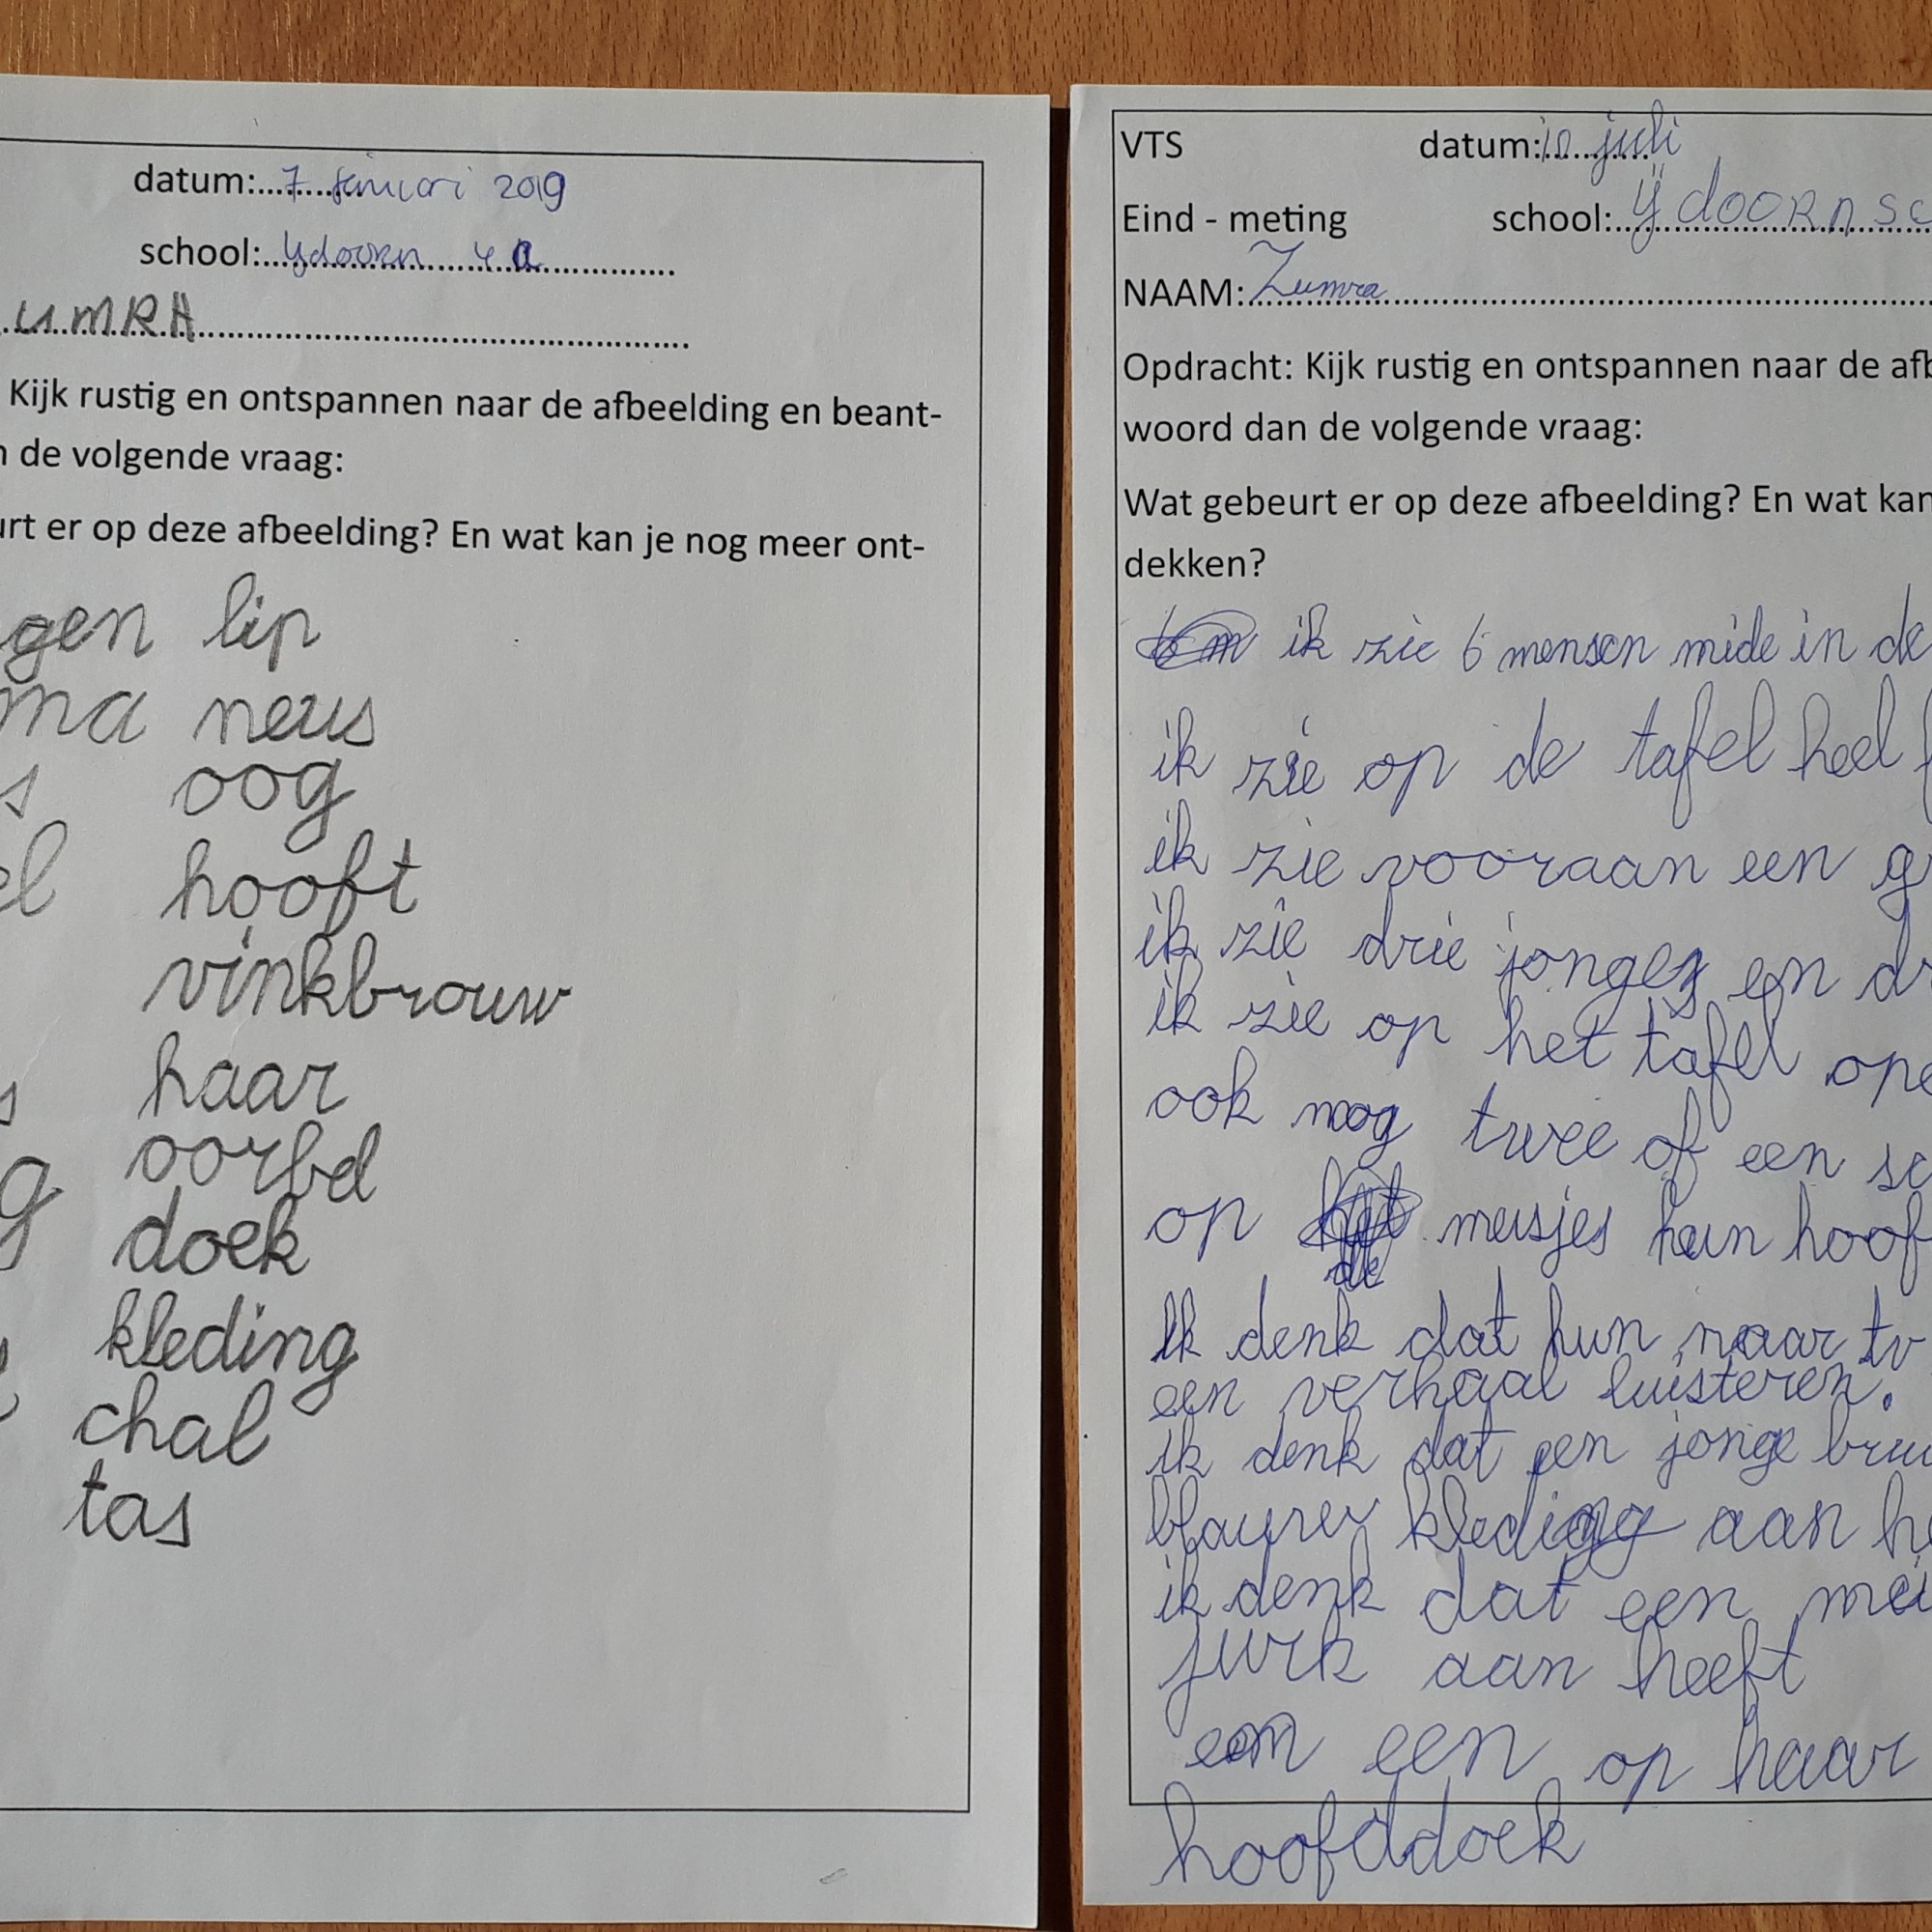 datum:... 7 januari 2019
school:... Ydoorn 4a
umRA
Kijk rustig en ontspannen naar de afbeelding en beant-
n de volgende vraag:
urt er op deze afbeelding? En wat kan je nog meer ont-
gen lip
ma neus
s oog
el hooft
vinkbrouw
haar
s oorbel
g doek
kleding
chal
tas
VTS datum:... 10 juli
Eind - meting school:... ÿdoornsc
NAAM:... Zumra
Opdracht: Kijk rustig en ontspannen naar de afb
woord dan de volgende vraag:
Wat gebeurt er op deze afbeelding? En wat kan
dekken?
ik zie 6 mensen mide in de
ik zie op de tafel heel
ik zie vooraan een g
ik zie drie jonges en dr
ik zie op het tafel ope
ook nog twee of een sc
op de meisjes hun hoof
Ik denk dat hun naar tv
een verhaal luisteren.
ik denk dat een jonge brui
blauwe kleding aan he
ik denk dat een mei
jurk aan heeft
een op haar
hoofddoek